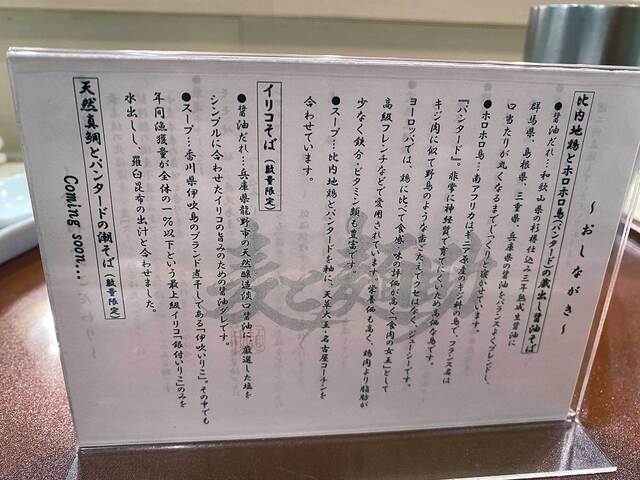 ～おしながき～
比内地鶏とホロホロ鳥(パンタード)の蔵出し醤油そば
●醤油だれ…和歌山県の杉樽仕込み三年熟成生醤油に
群馬県、島根県、三重県、兵庫県の醤油をバランスよくブレンドし、
口当たりが丸くなるまでじっくりと寝かせています。
●ホロホロ鳥…南アフリカはギニア原産のキジ科の鳥で、フランス名は
『パンタード』。非常に神経質で育てにくいため高価な鳥です。
キジ肉に似て野鳥のような歯ごたえでクセはなく、ジューシーです。
ヨーロッパでは、鶏に比べて食感・味の評価が高く「食肉の女王」として
高級フレンチなどで愛用されています。栄養価も高く、鶏肉より脂肪が
少なく鉄分・ビタミン類も豊富です。
●スープ…比内地鶏とパンタードを軸に、天草大王・名古屋コーチンを
合わせています。
イリコそば(数量限定)
●醤油だれ…兵庫県龍野市の天然醸造淡口醤油に、厳選した塩を
シンプルに合わせたイリコの旨みのための醤油ダレです。
●スープ…香川県伊吹島のブランド煮干しである「伊吹いりこ」。その中でも
年間漁獲量が全体の一%以下という最上級イリコ「銀付いりこ」のみを
水出しし、羅臼昆布の出汁と合わせました。
天然真鯛とパンタードの潮そば(数量限定)
Coming soon...
麦と麺助